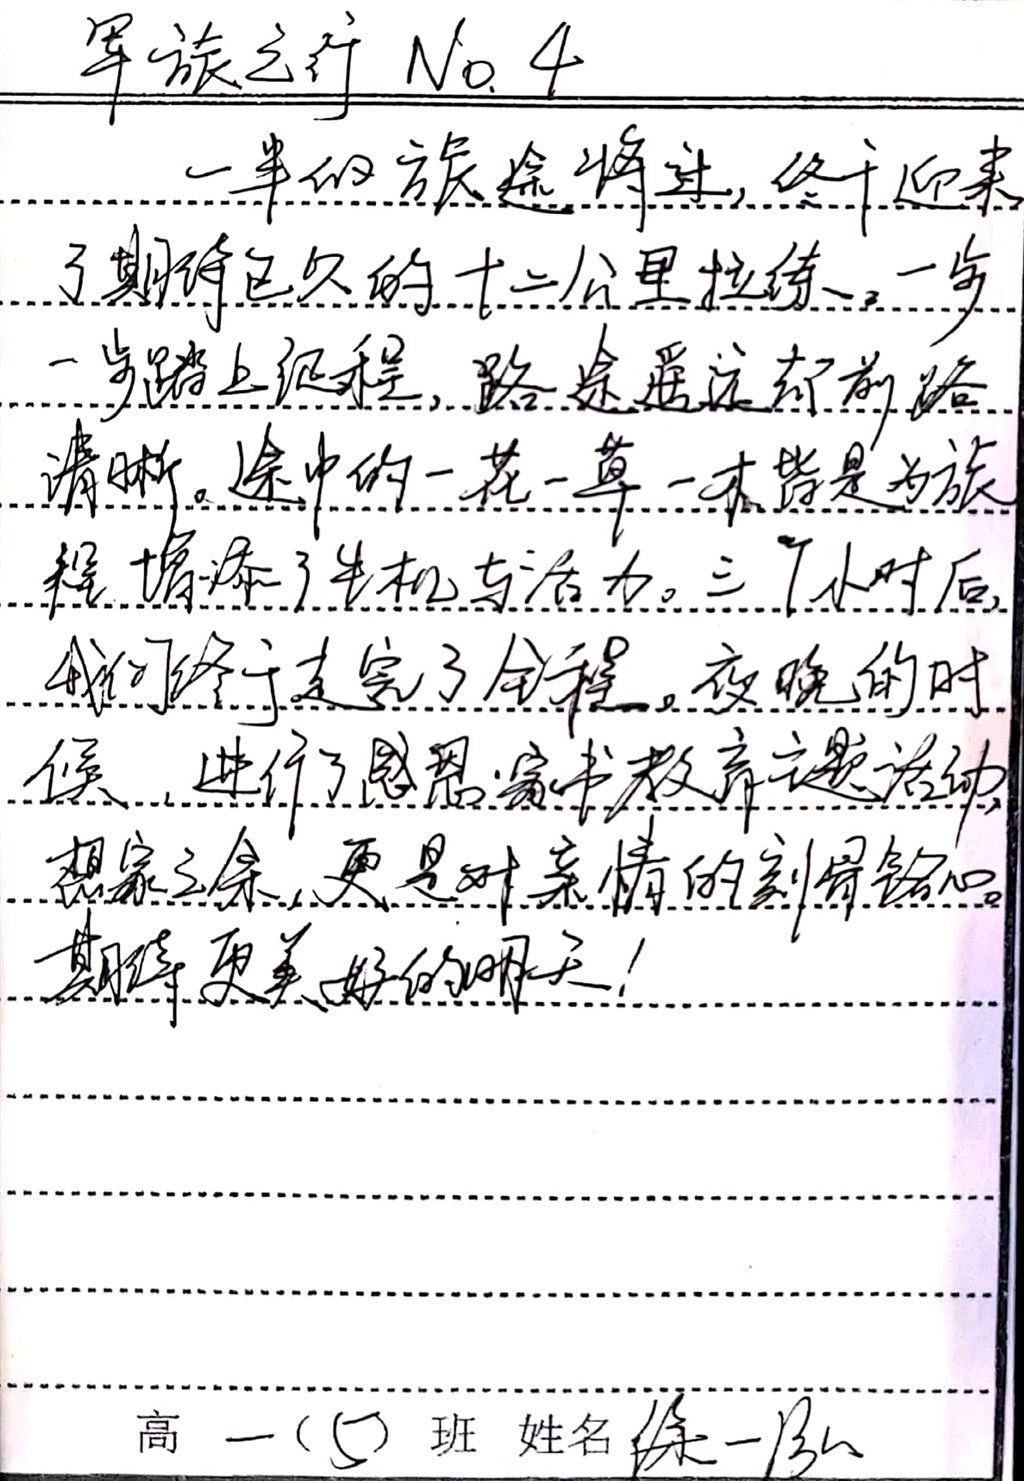 军旅之行 No.4
一半的旅途将过，终于迎来
了期待已久的十二公里拉练。一步
一步踏上征程，路途遥远却前路
清晰。途中的一花一草一木皆是为旅
程增添了生机与活力。三个小时后，
我们终于走完了全程。夜晚的时
候，进行了感恩家书教育主题活动，
想家之余，更是对亲情的刻骨铭心。
期待更美好的明天！
高一(5)班 姓名 徐一泓